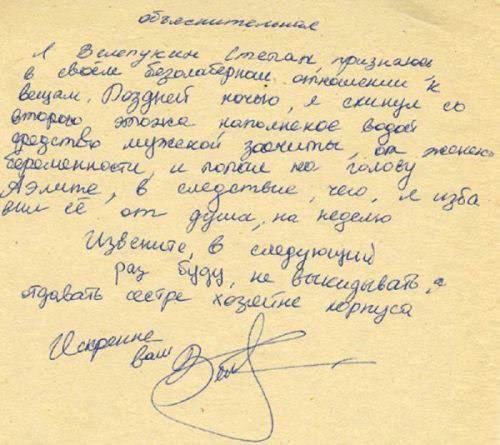 объяснительная
Я Велепукин Степан, признаюсь
в своём безалаберном отношении к
вещам. Поздней ночью, я скинул со
второго этожа наполненое водой
средство мужской защиты, от женской
беременности, и попал на голову
Аэлите, в следствие, чего, я изба
вил её от душа, на неделю
Извените, в следующий
раз буду, не выкидывать, а
отдавать сестре хозяйке корпуса
Искренне
ваш